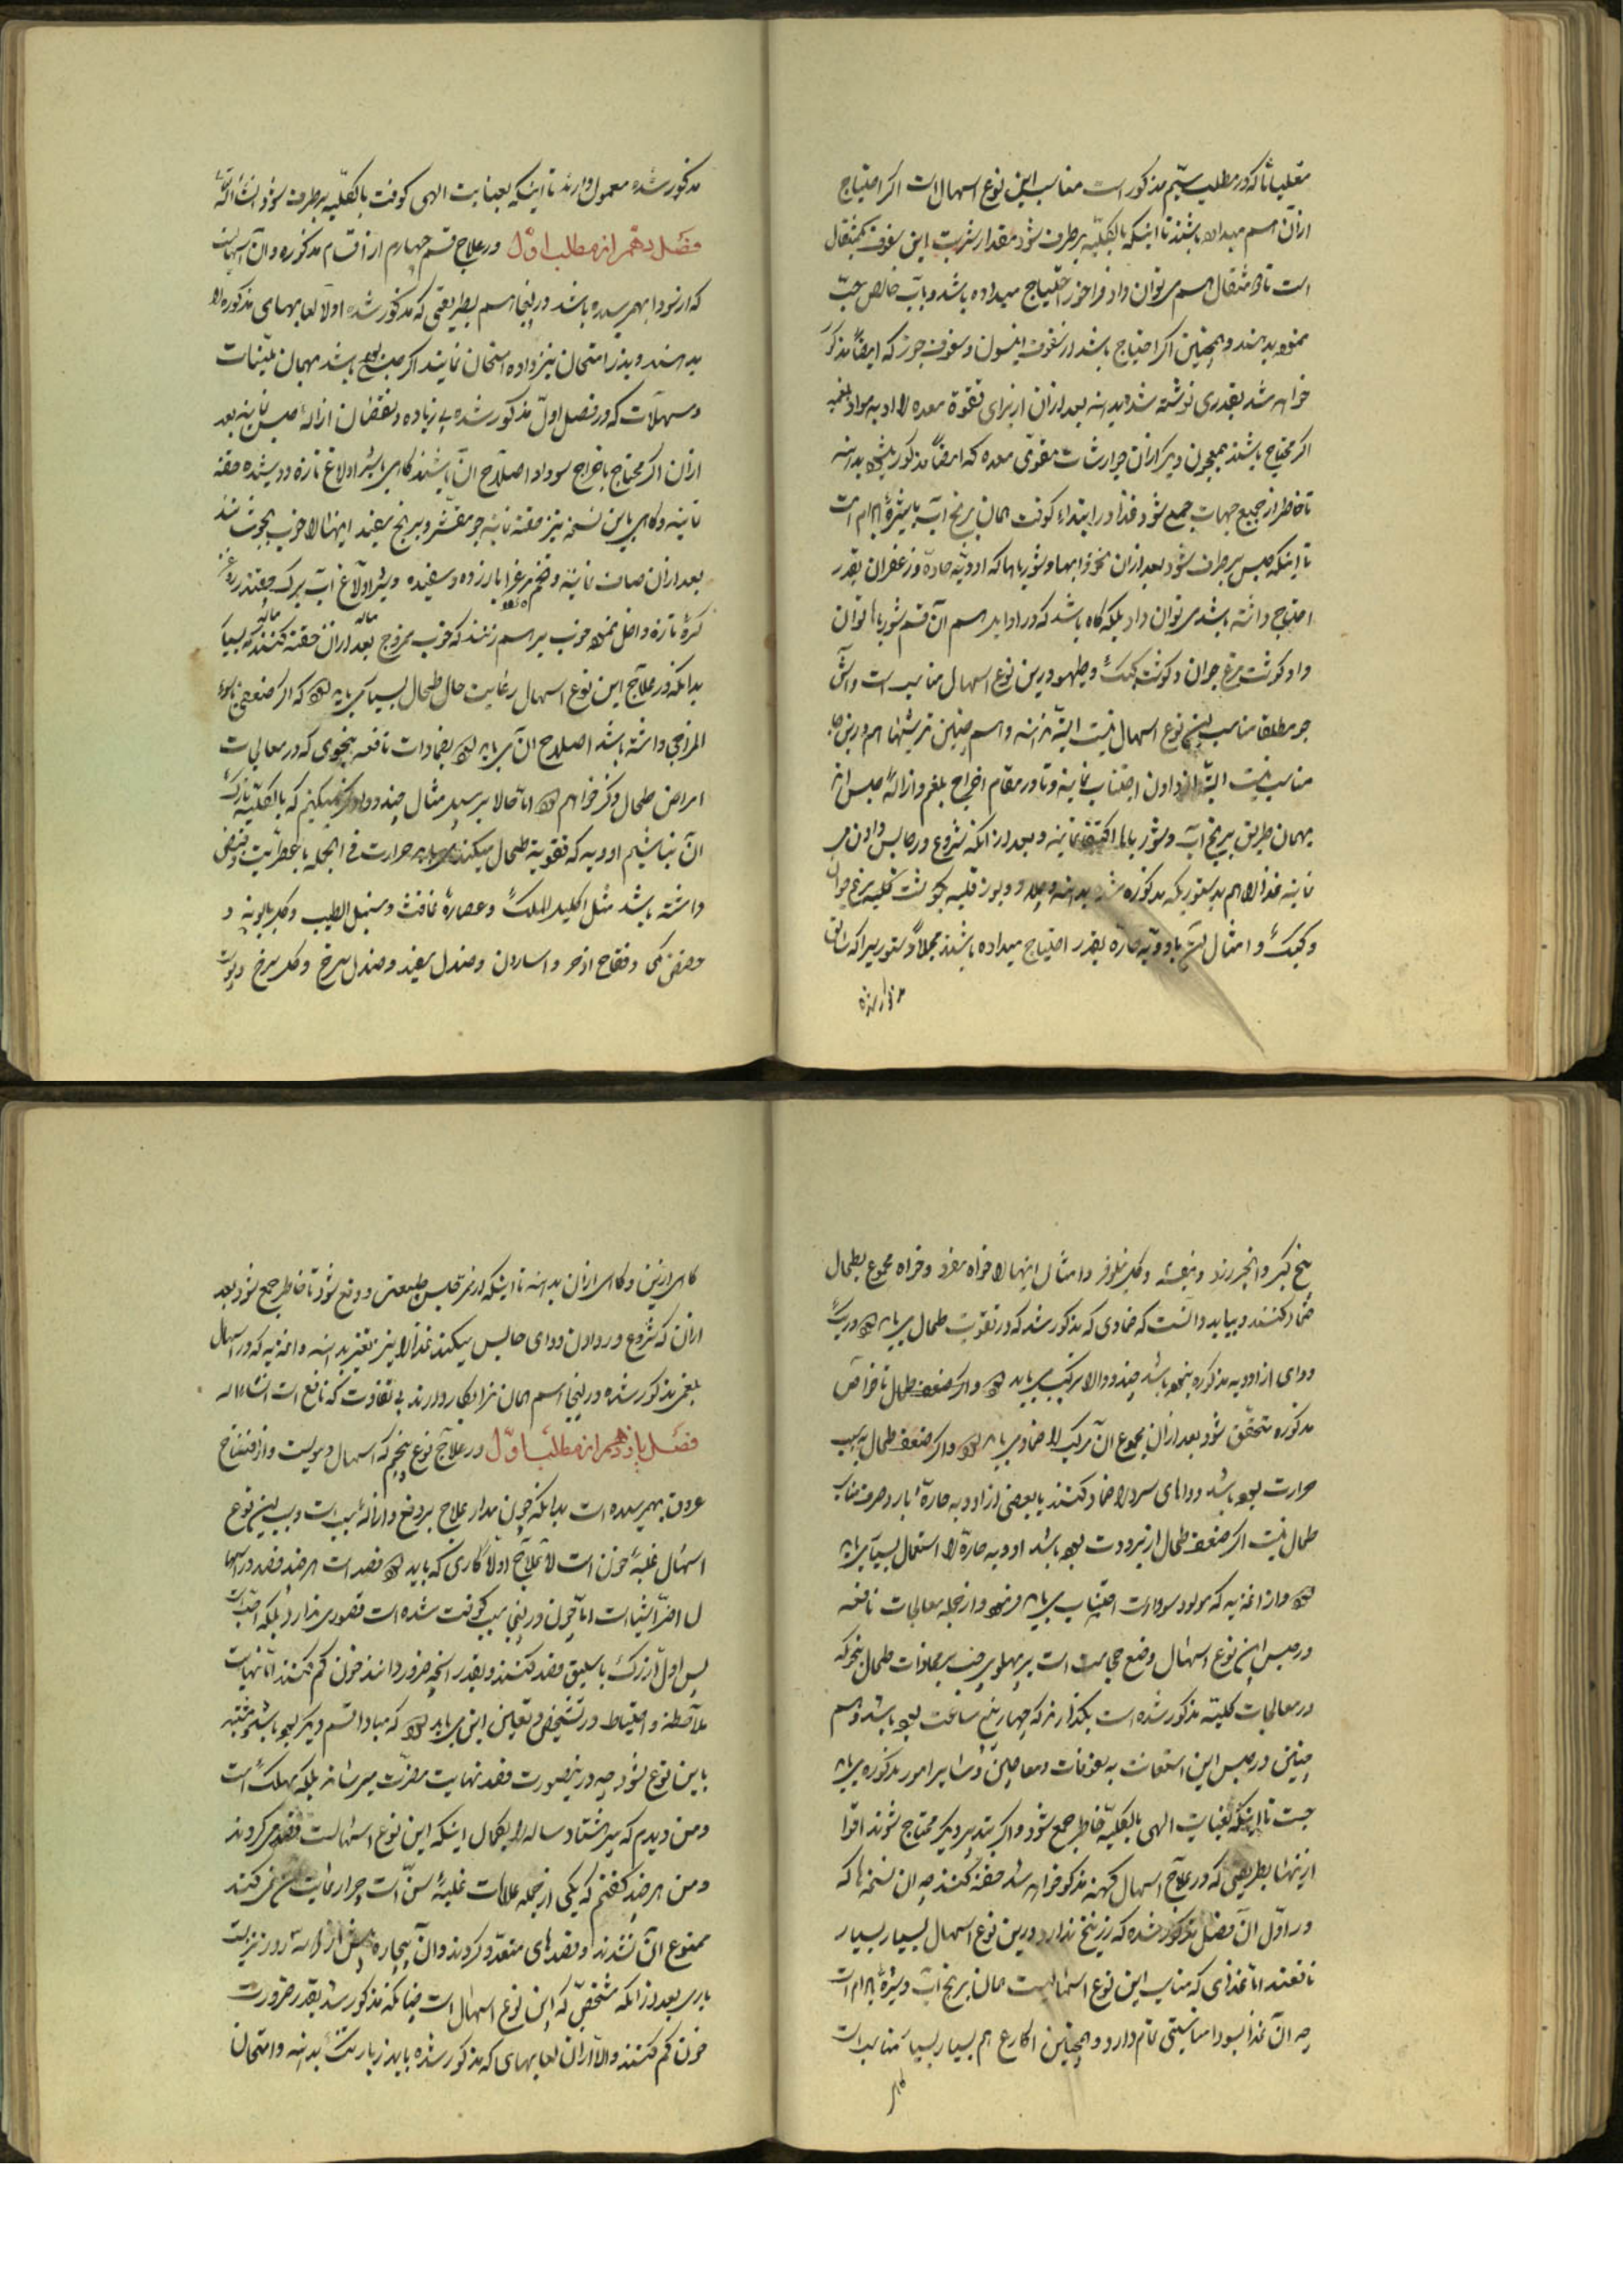 مقلیاثا که در مطلب سیّم مذکور است مناسب این نوع اسهال است اکر احتیاج
از آن هم میداده باشند تا اینکه بالکلّیه برطرف شود مقدار شربت این سفوف یکمثقال
است تا دو مثقال هم می توان داد فراخور احتیاج میداده باشد و باب خالص حبّ
نموده بدهند و همچنین اکر احتیاج باشد از سفوف انیسون و سفوف جوز که ایضاً مذکور
خواهد شد بقدری نوشته شد بدهند بعد از آن از برای تقوة معده را از مواد بلغمیه
اکر محتاج باشند بمعجون دیکر از آن جوارشات مقوّی معده که ایضاً مذکور بدهند
تا خاطر از جمیع جهات جمع شود و غذا در ابتداء کوفت همان برنج آب با شیره بادام است
تا اینکه حبس برطرف شود بعد از آن نخودابها و شورباها که ادویّه حارّه و زعفران بقدر
احتیاج داشته باشد می توان داد بلکه کاه باشد که در اوایل هم آن قسم شورباها توان
داد و کوشت مرغ جوان و کوشت کبک و طیهو درین نوع اسهال مناسب است و آش
جو مطلقا مناسب این نوع اسهال نیست البتّه ندهند و هم چنین ترشیها هم درین جا
مناسب نیست البتّه از دادن اجتناب نمایند و تا در مقام اخراج بلغم و ازالهٔ حبس اند
بهمان طریق برنج آب و شورباها اکتفا نمایند و بعد از آنکه شروع در حابس دادن می
نمایند غذا را هم بدستوریکه مذکوره شد بدهند و چلاو و بوز قلیه بکوشت کلیه مرغ جوان
و کبک و امثال آن با ادویّه حارّه بقدر احتیاج میداده باشند مجملاً دستوریرا که سابق
مذکور شده
مذکور شده معمول دارند تا اینکه بعنایت الهی کوفت بالکلّیه برطرف شود انشاء الله
فصل دهم از مطلب اوّل در علاج قسم چهارم از اقسام مذکوره و آن اسهالیست
که از سودا بهم رسیده باشد در اینجا هم بطریقی که مذکور شد اولاً لعابهای مذکوره را
بدهند و بذر امتحان نیز داده امتحان نمایند اکر حبس باشد بهمان ملیّنات
و مسهلات که در فصل اوّل مذکور شده بی زیاده و نقصان ازالهٔ حبس نمایند بعد
از آن اکر محتاج باخراج سودا و اصلاح آن باشند کاهی بشیر اولاغ تازه دوشیده حقنه
نمایند و کاهی باین نسخه نیز حقنه نمایند جو مقشّر و برنج سفید اینها را خوب بجوشانند
بعد از آن صاف نمایند و تخم مرغ را با زرده و سفیده و شیر اولاغ آب برک چغندر روغن
کرهٔ تازه داخل نموده خوب برهم زنند که خوب ممزوج بعد از آن حقنه کنند که بسیار
بدانکه در علاج این نوع اسهال رعایت حال طحال بسیار می باید کرد که اکر ضعفی یا سوء
المزاجی داشته باشد اصلاح آن می باید کرد بضمادات نافعه بنحوی که در معالجات
امراض طحال ذکر خواهم کرد امّا حالا بر سبیل مثال چند دوا ذکر میکنیم که بالکلّیه تارک
آن نباشیم ادویه که تقویة طحال میکند حرارت فی الجمله با عطریّت و قبضی
داشته باشد مثل اکلیل الملک و عصارهٔ غافث و سنبل الطیب و کل بابونه و
حضض مکّی و فقاح اذخر و اسارون و صندل سفید و صندل سرخ و کل سرخ و پوست
بیخ کبر و انجیر زرد و بنفشه و کل نیلوفر و امثال اینها را خواه مفرد و خواه مجموع بطحال
ضماد کنند و بباید دانست که ضمادی که مذکور شد که در تقویت طحال می باید کرد
دوای از ادویه مذکوره بنحو باشد چند دوا را مرکّب می باید کرد و اکر ضعف طحال با خواصّ
مذکوره متحقّق شود بعد از آن مجموع آن مرکّب را ضماد می باید کرد و اکر ضعف طحال بسبب
حرارت بوده باشد دواهای سرد را ضماد کنند با بعضی از ادویه حارّه اما بارد صرف مناسب
طحال نیست اکر ضعف طحال از برودت بوده باشد ادویه حارّه را استعمال بسیار می باید
کرد و از اغذیه که مولود سوداست اجتناب می باید فرمود و از جمله معالجات نافعه
در حبس این نوع اسهال وضع حجامت است بر پهلوی چپ بر محاذات طحال بنحو که
در معالجات کلیّه مذکور شده است بکذارند که چهار پنج ساعت بوده باشد و هم
چنین در حبس این استعانت به سفوفات و معاجین و سایر امور مذکوره می باید
جست تا اینکه بعنایت الهی بالکلیّه خاطر جمع شود و اکر بتدبیر دیکر محتاج شوند اقوا
از اینها بطریقی که در علاج اسهال کهنه مذکور خواهد شد حقنه کنند چه آن نسخه ها که
در اوّل آن فصل مذکور شده که زرنیخ ندارد درین نوع اسهال بسیار بسیار
نافعند امّا غذای که مناسب این نوع اسهالست همان برنج آب و شیرهٔ بادام است
چه آن غذا بسودا مناسبتی تمام دارد و همچنین اکارع هم بسیار بسیار مناسب است
کاهی
کاهی ازین و کاهی از آن بدهند تا اینکه از نرم حبس طبیعت و دفع شود تا خاطر جمع شود بعد
از آن که شروع در دادن دوای حابس میکنند غذا را نیز تغییر بدهند و اغذیه که در اسهال
بلغمی مذکور شده در اینجا هم همان نیز بکار دارند بی تفاوت که نافع است انشاء الله
فصل یازدهم از مطلب اوّل در علاج نوع پنجم که اسهال دمویست و از انفتاح
عروق بهم رسیده است بدانکه چون مدار علاج بر دفع و ازالهٔ سبب است و سبب این نوع
اسهال غلبهٔ خون است لا علاج اولاً کاری که باید کرد فصد است هر چند فصد در اسها
ل اضرّ اشیاست امّا چون در اینجا سبب کوفت شده است قصوری ندارد بلکه است
پس اول از رک باسلیق فصد کنند و بقدر آنچه ضرور دانند خون کم کنند امّا نهایت
ملاحظه و احتیاط در تشخیص و تعیین این می باید کرد که مبادا قسم دیکر بوده باشد و مشتبه
باین نوع شود چه درین صورت فصد نهایت مضرّت میرساند بلکه مهلک است
و من دیدم که پیر هشتاد ساله را بکمال اینکه این نوع اسهالست فصد می کردند
و من هر چند کفتم که یکی از جمله علامات غلبهٔ سن است چرا رعایت سن نمی کنند
ممنوع آن نشدند و فصدهای متعدّد کردند و آن بیچاره بیش از سه روز نزیست
باری بعد از آنکه مشخّص که این نوع اسهال است چنانکه مذکور شد بقدر ضرورت
خون کم کنند و الا از آن لعابهای که مذکور شده باید زیاد بدهند و امتحان